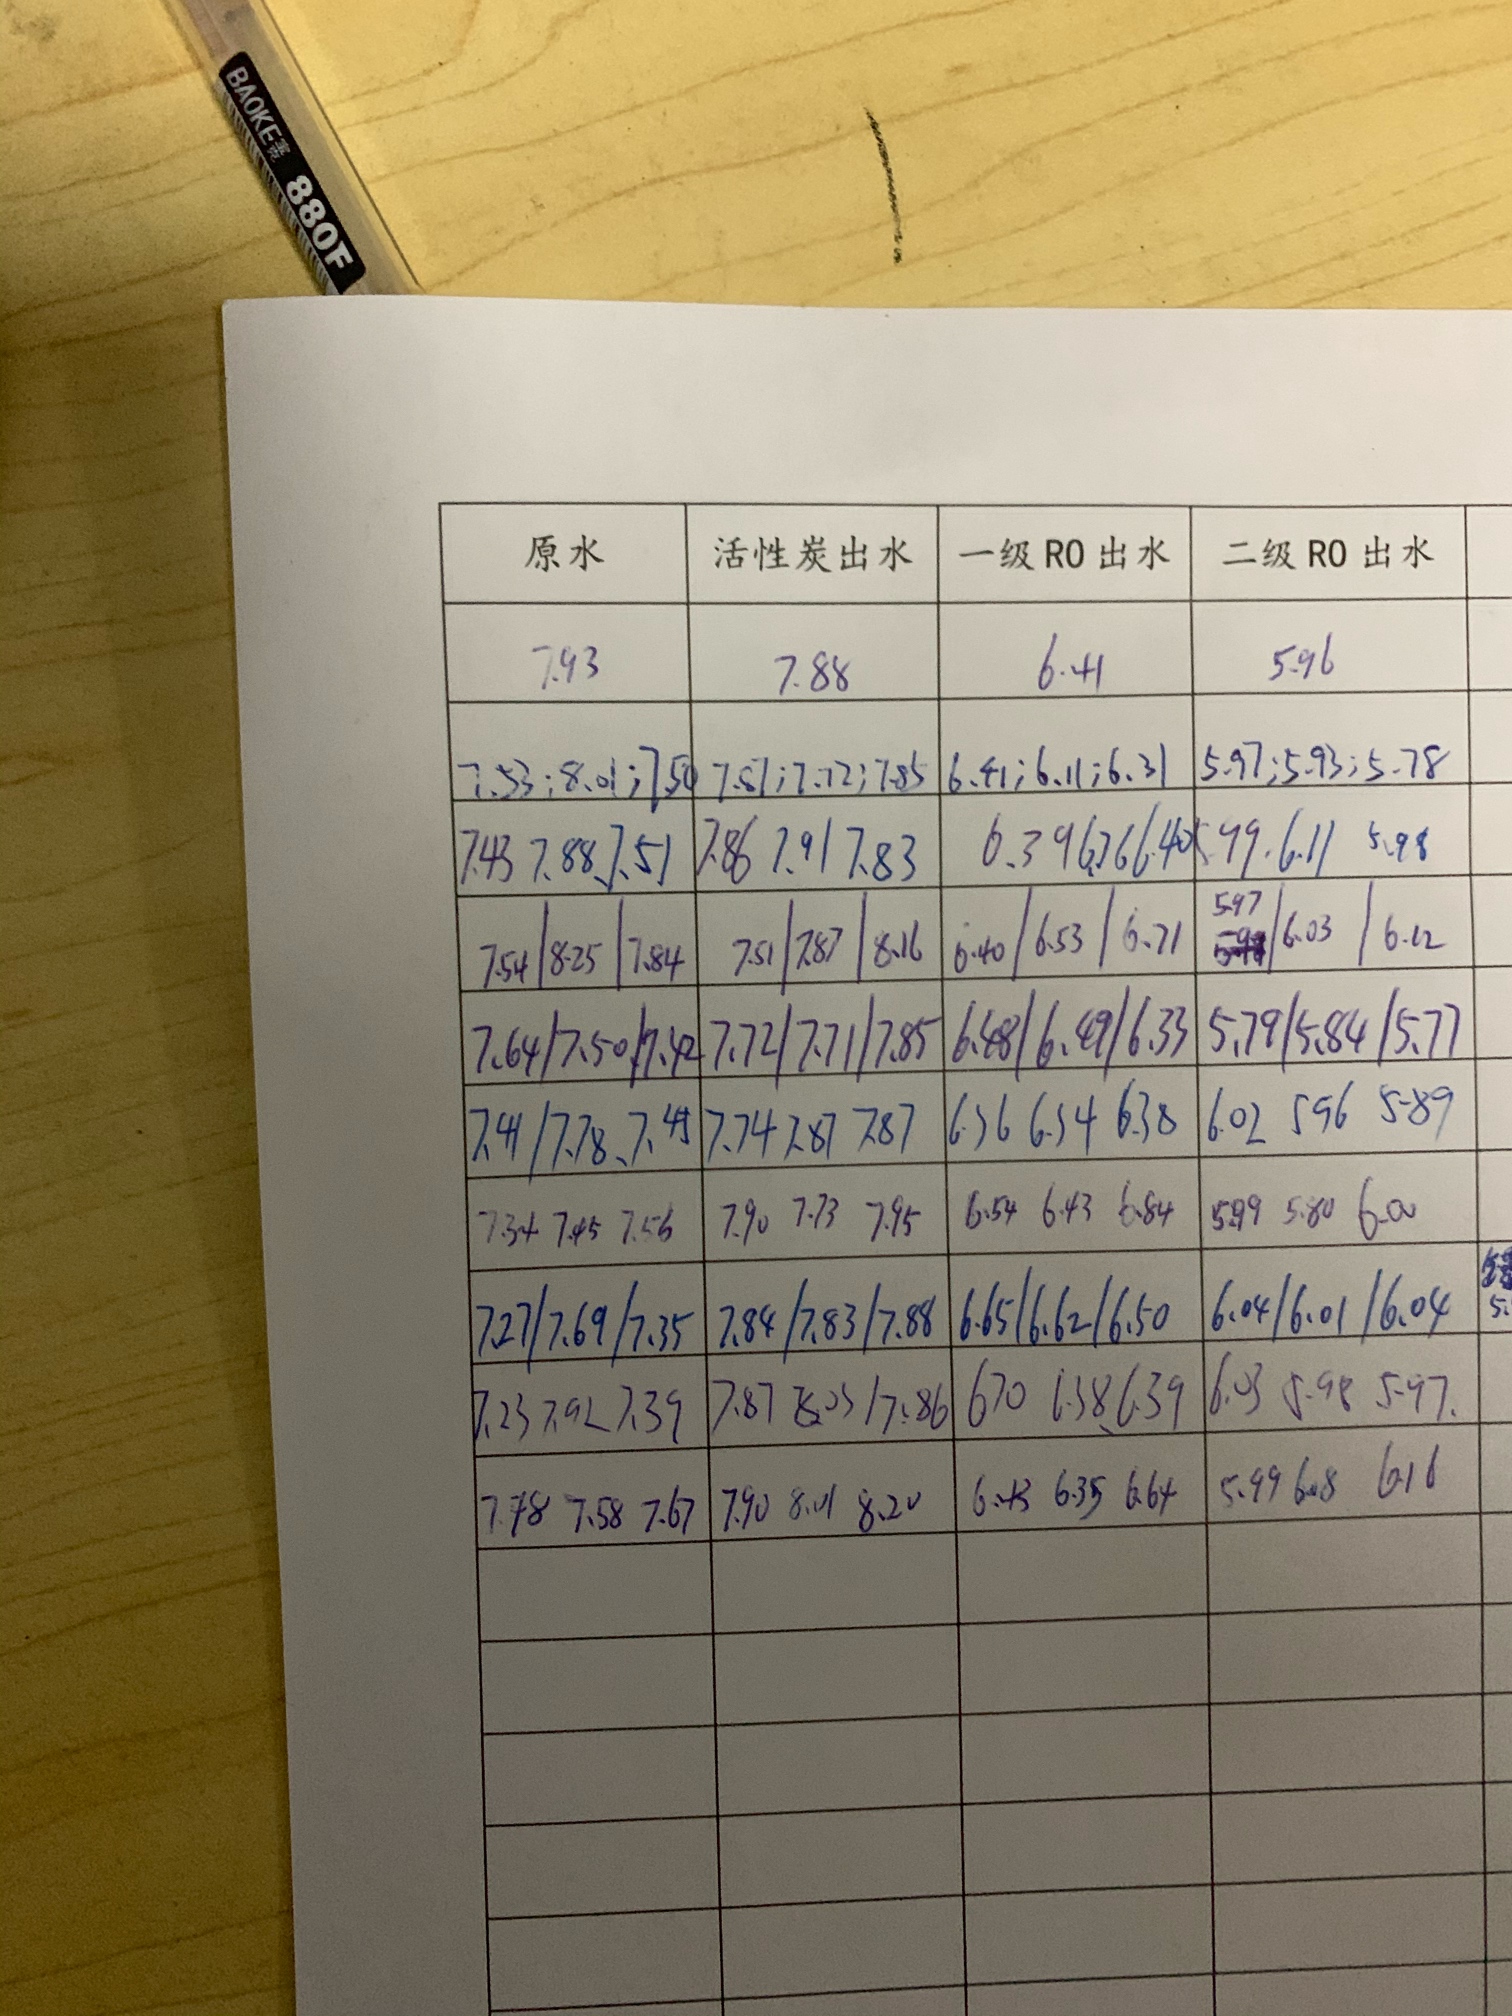 BAOKE宝克 880F
原水 活性炭出水 一级RO出水 二级RO出水
7.93 7.88 6.41 5.96
7.53;8.01;7.50 7.81;7.72;7.85 6.41;6.11;6.31 5.97;5.93;5.78
7.43 7.88、7.51 7.86 7.91 7.83 6.39 6.40 5.99. 6.11 5.98
7.54/8.25/7.84 7.51/7.87/8.16 6.40/6.53/6.71 5.97/6.03/6.12
7.64/7.50/7.42 7.72/7.71/7.85 6.48/6.49/6.33 5.79/5.84/5.77
7.41/7.78、7.45 7.74 7.87 7.87 6.36 6.34 6.38 6.02 5.96 5.89
7.34 7.45 7.56 7.90 7.73 7.95 6.54 6.43 6.84 5.99 5.80 6.00
7.27/7.69/7.35 7.84/7.83/7.88 6.65/6.62/6.50 6.04/6.01/6.04
7.23 7.92 7.39 7.87 8.03/7.86 670 6.38、6.39 6.03 5.98 5.97.
7.78 7.58 7.67 7.90 8.01 8.20 6.43 6.35 6.64 5.99 6.08 6.16